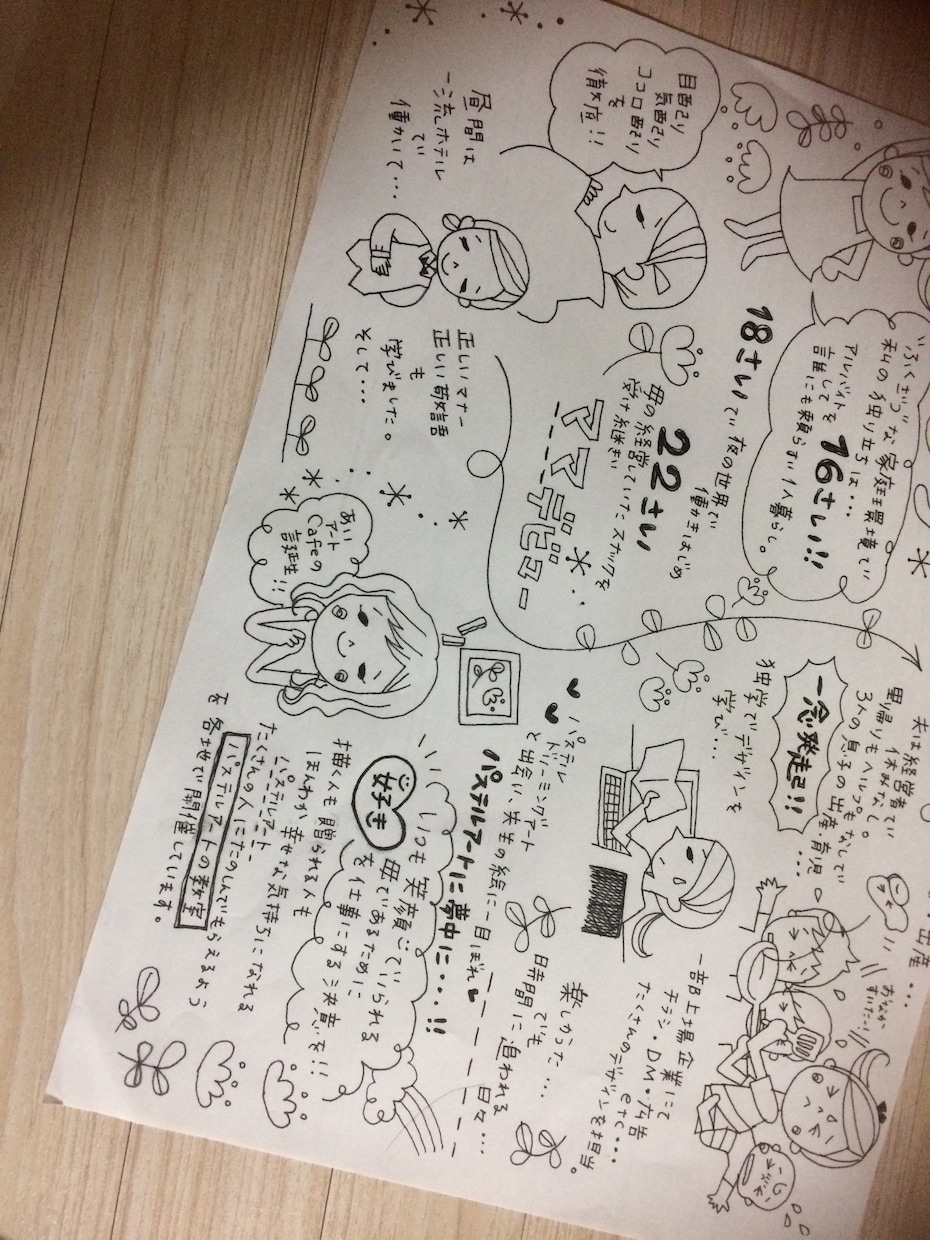 "ふくざつ"な家庭環境で
私の独り立ちは・・・
16さい!!
アルバイトをして
誰にも頼らず1人暮らし。
18さいで夜の世界で
働きはじめ
22さい
母の経営していたスナックを
受け継ぎ
ママデビュー
目配り
気配り
ココロ配り
を
徹底!!
昼間は
一流ホテル
で
働いて・・・
正しいマナー
正しい敬語
も
学びました。
そして・・・
出産
夫は経営者で
休みなし。
里帰りもヘルプもなしで
3人の息子の出産・育児
・・・
おなか
すいたー!!
一念発起!!
独学でデザインを
学び・・・
一部上場企業にて
チラシ・DM・広告
etc・・・
たくさんのデザインを担当。
楽しかった・・・
でも
時間に追われる
日々・・・
パステル
ドリーミングアート
と出会い、先生の絵に一目ぼれ
パステルアートに夢中に・・・!!
いつも笑顔でいられる
母であるために
好き
を仕事にする決意を!!
あい
アート
Cafeの
誕生!!
描く人も贈られる人も
ほんわか幸せな気持ちになれる
パステルアート
たくさんの人にたのしんでもらえるよう
パステルアートの教室
を各地で開催しています。